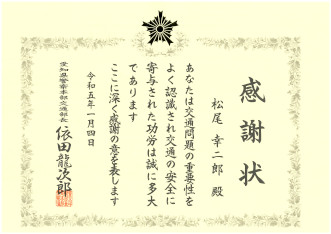 感謝状
松尾幸二郎 殿
あなたは交通問題の重要性を
よく認識され交通の安全に
寄与された功労は誠に多大
であります
ここに深く感謝の意を表します
令和五年一月四日
愛知県警察本部交通部長
依田龍次郎